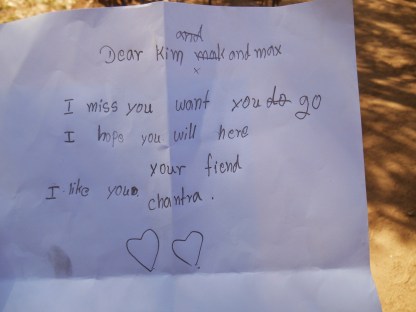 and
Dear Kim mak and max
I miss you want you do go
I hops you will here
your fiend
I like you
chantra.